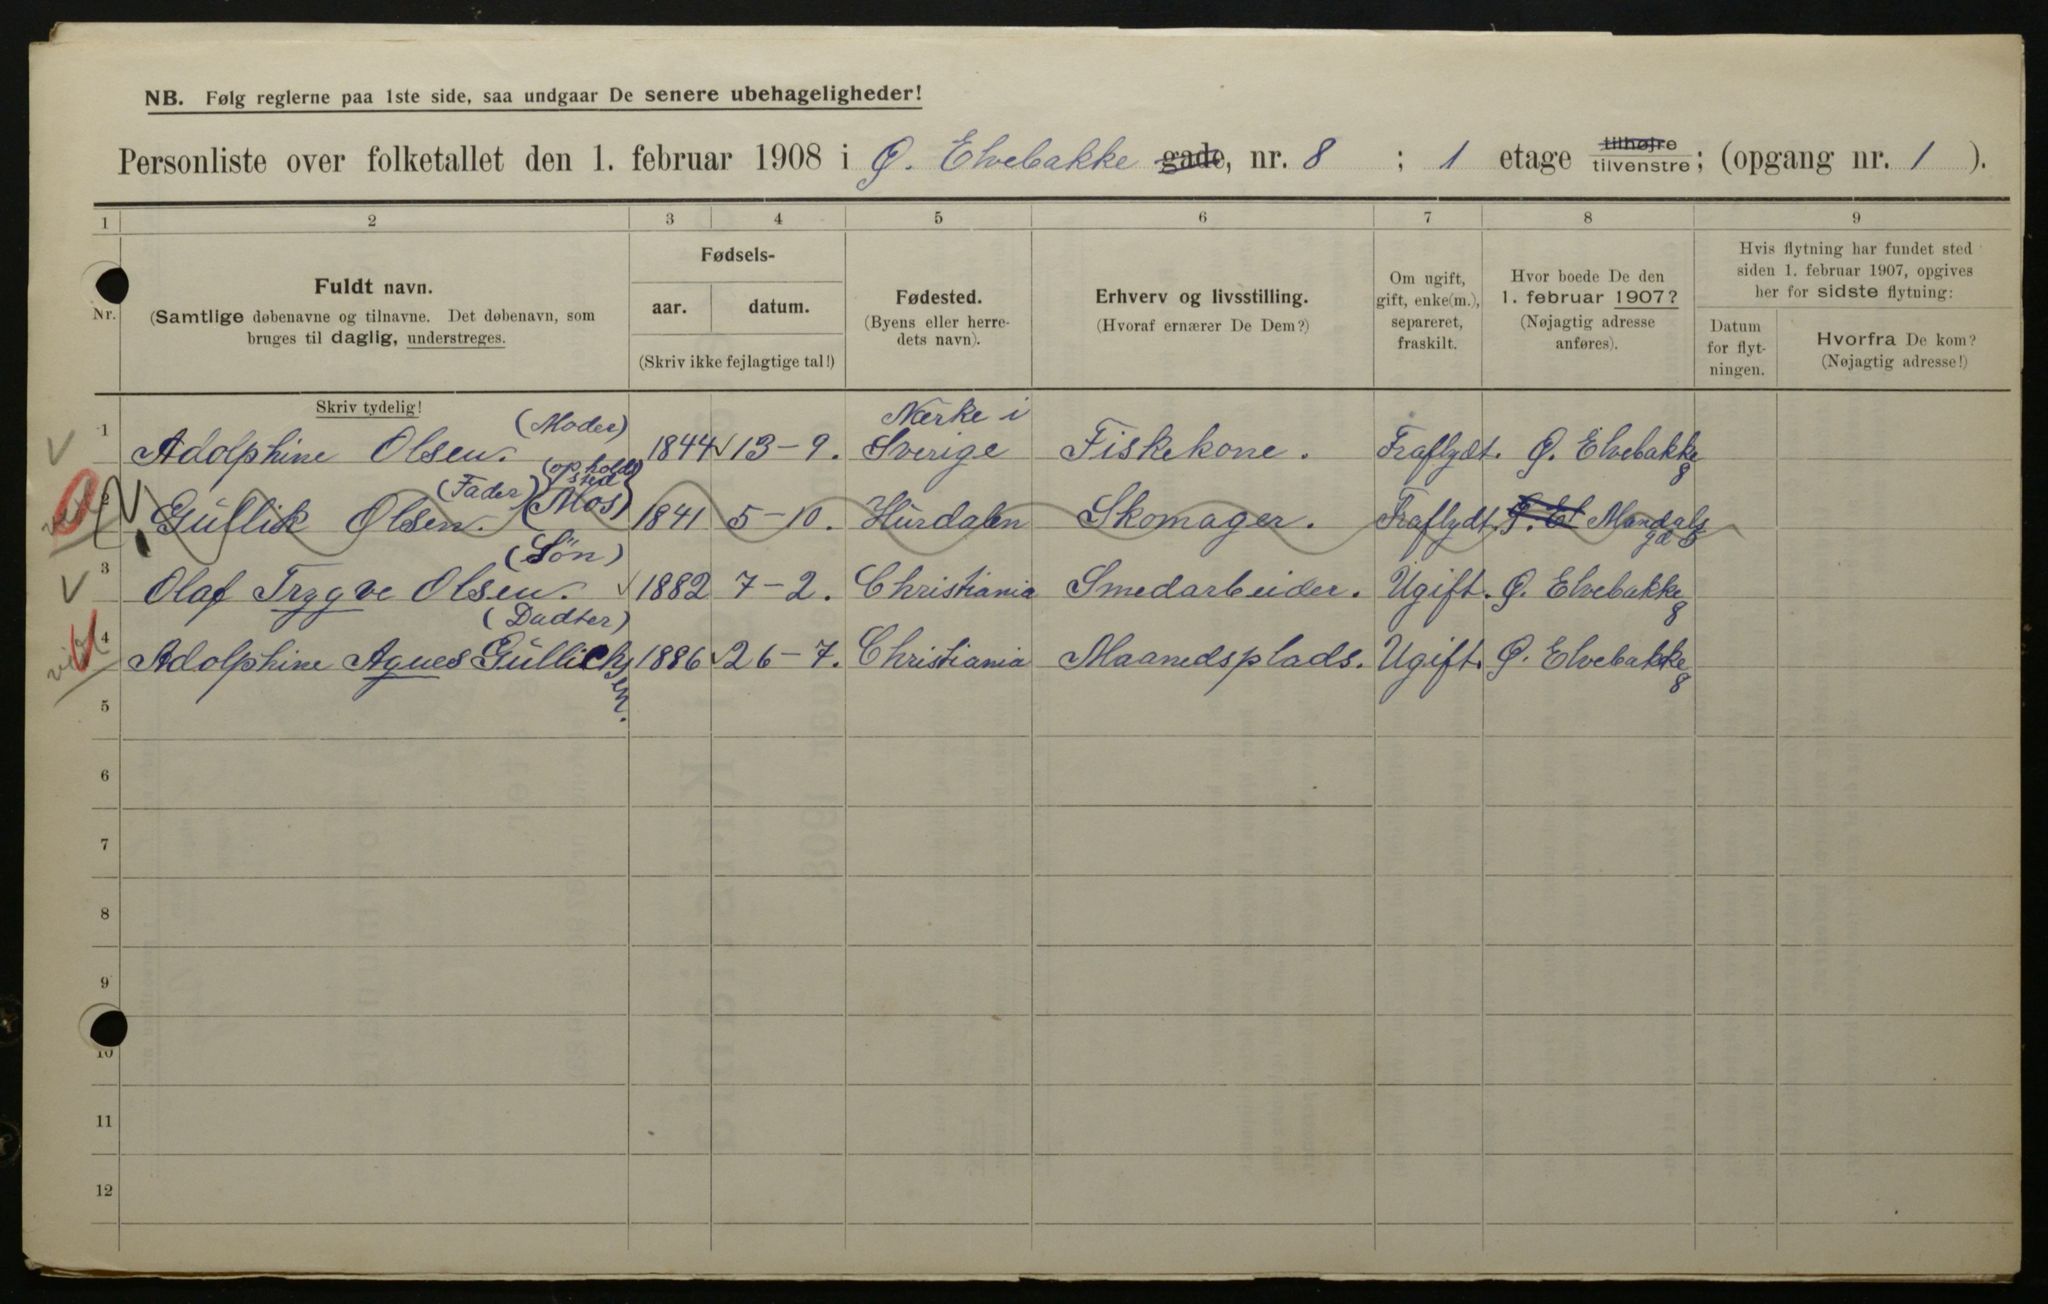 NB. Følg reglerne paa 1ste side, saa undgaar De senere ubehageligheder!
Personliste over folketallet den 1. februar 1908 i Ø. Elvebakke gade, nr. 8 ; 1 etage tilhøjre tilvenstre; (opgang nr. 1 ).
1 2 3 4 5 6 7 8 9
Nr.
Fuldt navn.
(Samtlige døbenavne og tilnavne. Det døbenavn, som
bruges til daglig, understreges.
Skriv tydelig!
Fødsels-
aar. datum.
(Skriv ikke fejlagtige tal!)
Fødested.
(Byens eller herre-
dets navn).
Erhverv og livsstilling.
(Hvoraf ernærer De Dem?)
Om ugift,
gift, enke(m.),
separeret,
fraskilt.
Hvor boede De den
1. februar 1907?
(Nøjagtig adresse
anføres).
Hvis flytning har fundet sted
siden 1. februar 1907, opgives
her for sidste flytning:
Datum
for flyt-
ningen.
Hvorfra De kom?
(Nøjagtig adresse!)
(Moder) Nærke i
1 Adolphine Olsen. 1844 13-9. Sverige Fiskekone. Fraflydt. Ø. Elvebakke 8
(Fader) (ophold sted Mos)
2 Gullik Olsen. 1841 5-10. Hurdalen Skomager. Fraflydt. Ø. El Mandals gd
(Søn)
3 Olaf Trygve Olsen. 1882 7-2. Christiania Smedarbeider. Ugift. Ø. Elvebakke 8
(Dadter)
4 Adolphine Agnes Gullichsen. 1886 26-7. Christiania Maanedsplads. Ugift. Ø. Elvebakke 8
5
6
7
8
9
10
11
12